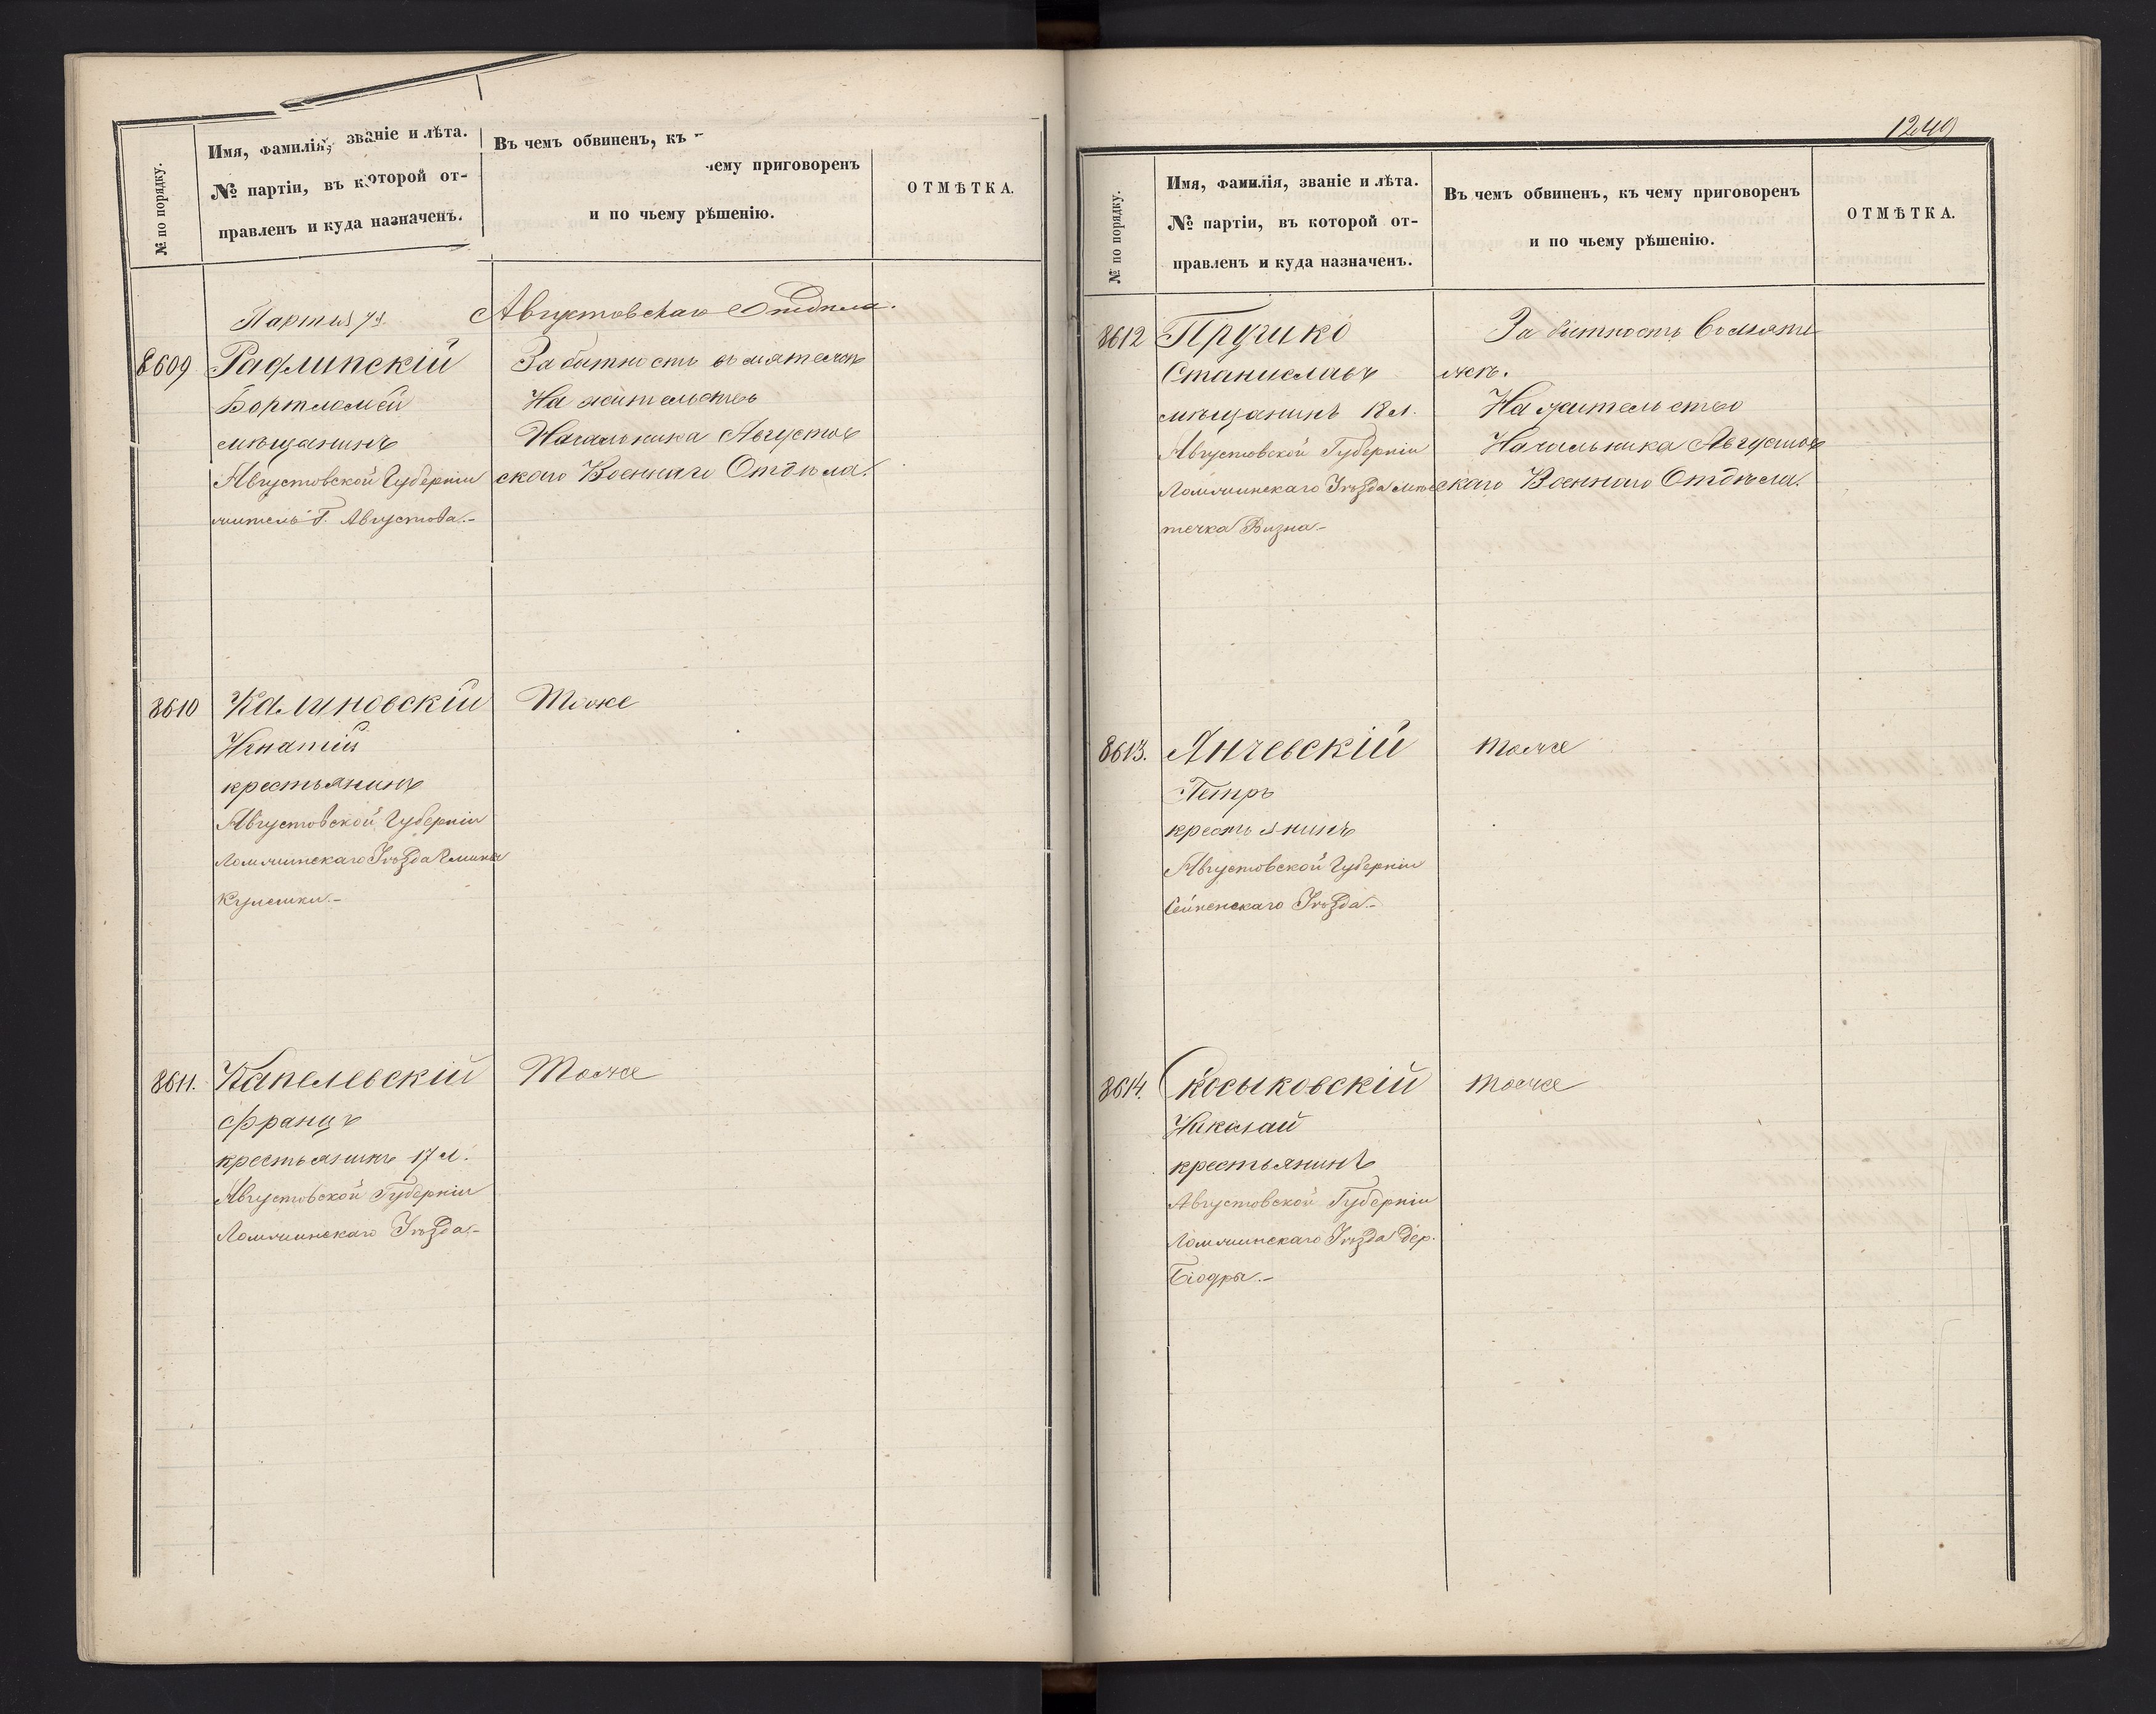 № по порядку.
Имя, фамилія, званіе и лѣта.
№ партіи, въ которой от-
правленъ и куда назначенъ.
Въ чемъ обвиненъ, къ
чему приговоренъ
и по чьему рѣшенію.
ОТМѢТКА.
Партія
Августовскаго Отдѣла.
8609
Радлинскій
Бортломей
мѣщанинъ
Августовской Губерніи
житель Г. Августова.-
За бытность въ мятежѣ
На жительство
Начальника Августов
скаго Военнаго Отдѣла.
8610
Калиновскій
Игнатій
крестьянинъ
Августовской Губерніи
Ломжинскаго Уѣзда Гмины
Кулешки.-
Тоже
8611.
Капелевскій
Францъ
крестьянинъ 17 л.
Августовской Губерніи
Ломжинскаго Уѣзда.-
Тоже
1249
№ по порядку.
Имя, фамилія, званіе и лѣта.
№ партіи, въ которой от-
правленъ и куда назначенъ.
Въ чемъ обвиненъ, къ чему приговоренъ
и по чьему рѣшенію.
ОТМѢТКА.
8612
Прушко
Станиславъ
мѣщанинъ 18 л.
Августовской Губерніи
Ломжинскаго Уѣзда мѣс
течка Визна.-
За бытность въ мяте
жѣ.
На жительство
Начальника Августов
скаго Военнаго Отдѣла.
8613.
Янчевскій
Петръ
крестьянинъ
Августовской Губерніи
Сейненскаго Уѣзда.-
тоже
8614.
Косыковскій
Николай
крестьянинъ
Августовской Губерніи
Ломжинскаго Уѣзда дер.
тоже